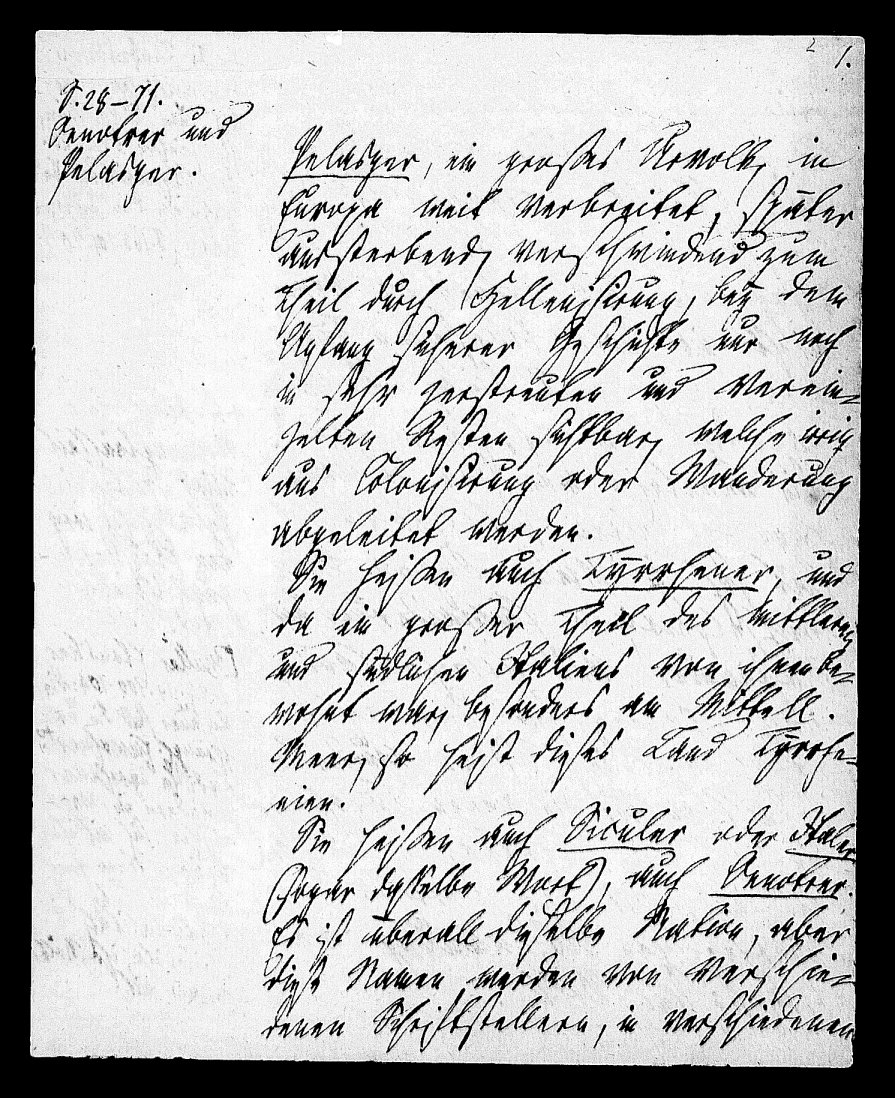 2 1.
S. 28-71.
Oenotrer und
Pelasger.
Pelasger, ein großes Urvolk, in
Europa weit verbreitet, später
aussterbend, verschwindend zum
Theil durch Hellenisirung, bey dem
Anfang sicherer Geschichte nur noch
in sehr zerstreuten und verein-
zelten Resten sichtbar, welche irrig
aus Colonisirung oder Wanderung
abgeleitet werden.
Sie heißen auch Tyrrhener, und
da ein großer Theil des mittleren
und südlichen Italiens von ihnen be-
wohnt war, besonders am Mittell.
Meer, so heist dieses Land Tyrrhe-
nien.
Sie heißen auch Siculer oder Italer
(sogar dasselbe Wort), auch Oenotrer.
Es ist überall dieselbe Nation, aber
diese Namen werden von verschie-
denen Schriftstellern, in verschiedenen